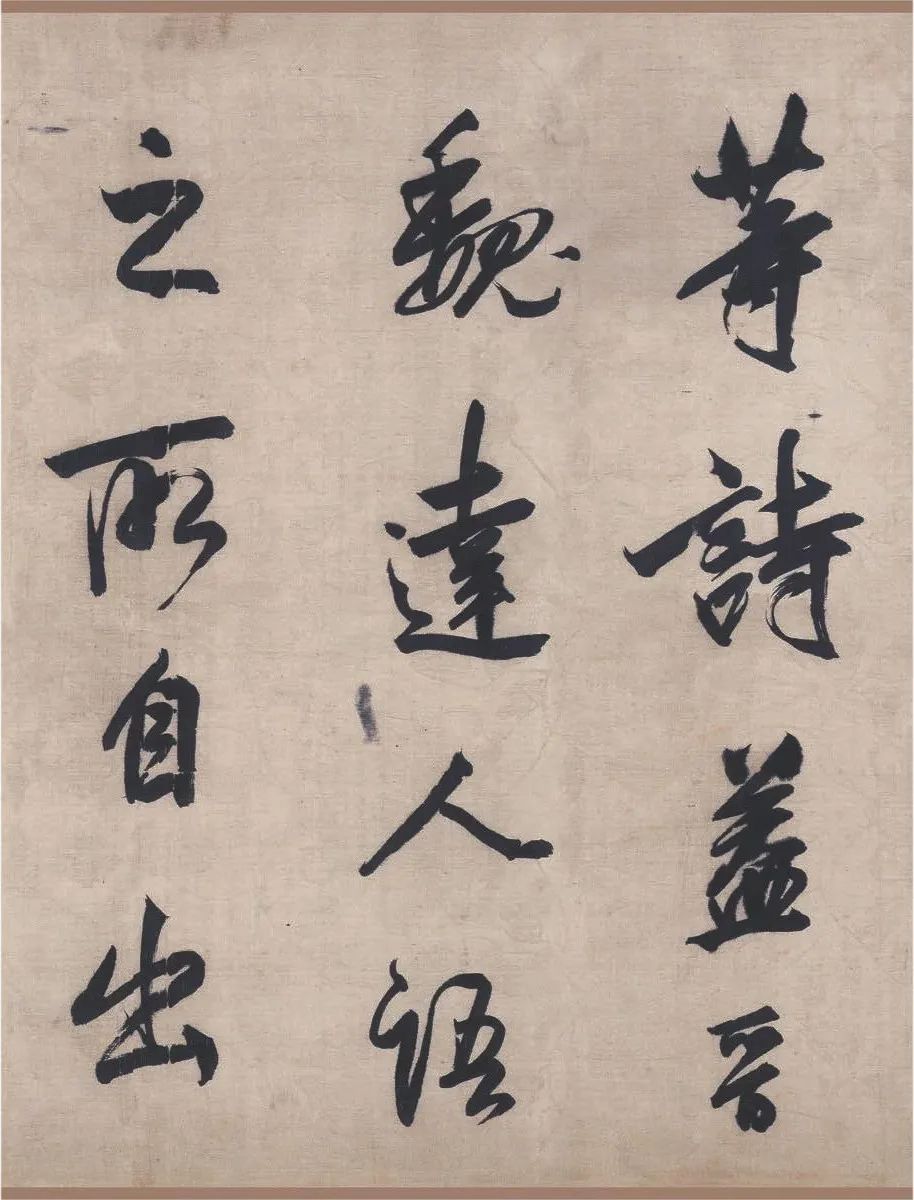 等詩蓋晉
魏達人語
之所自出